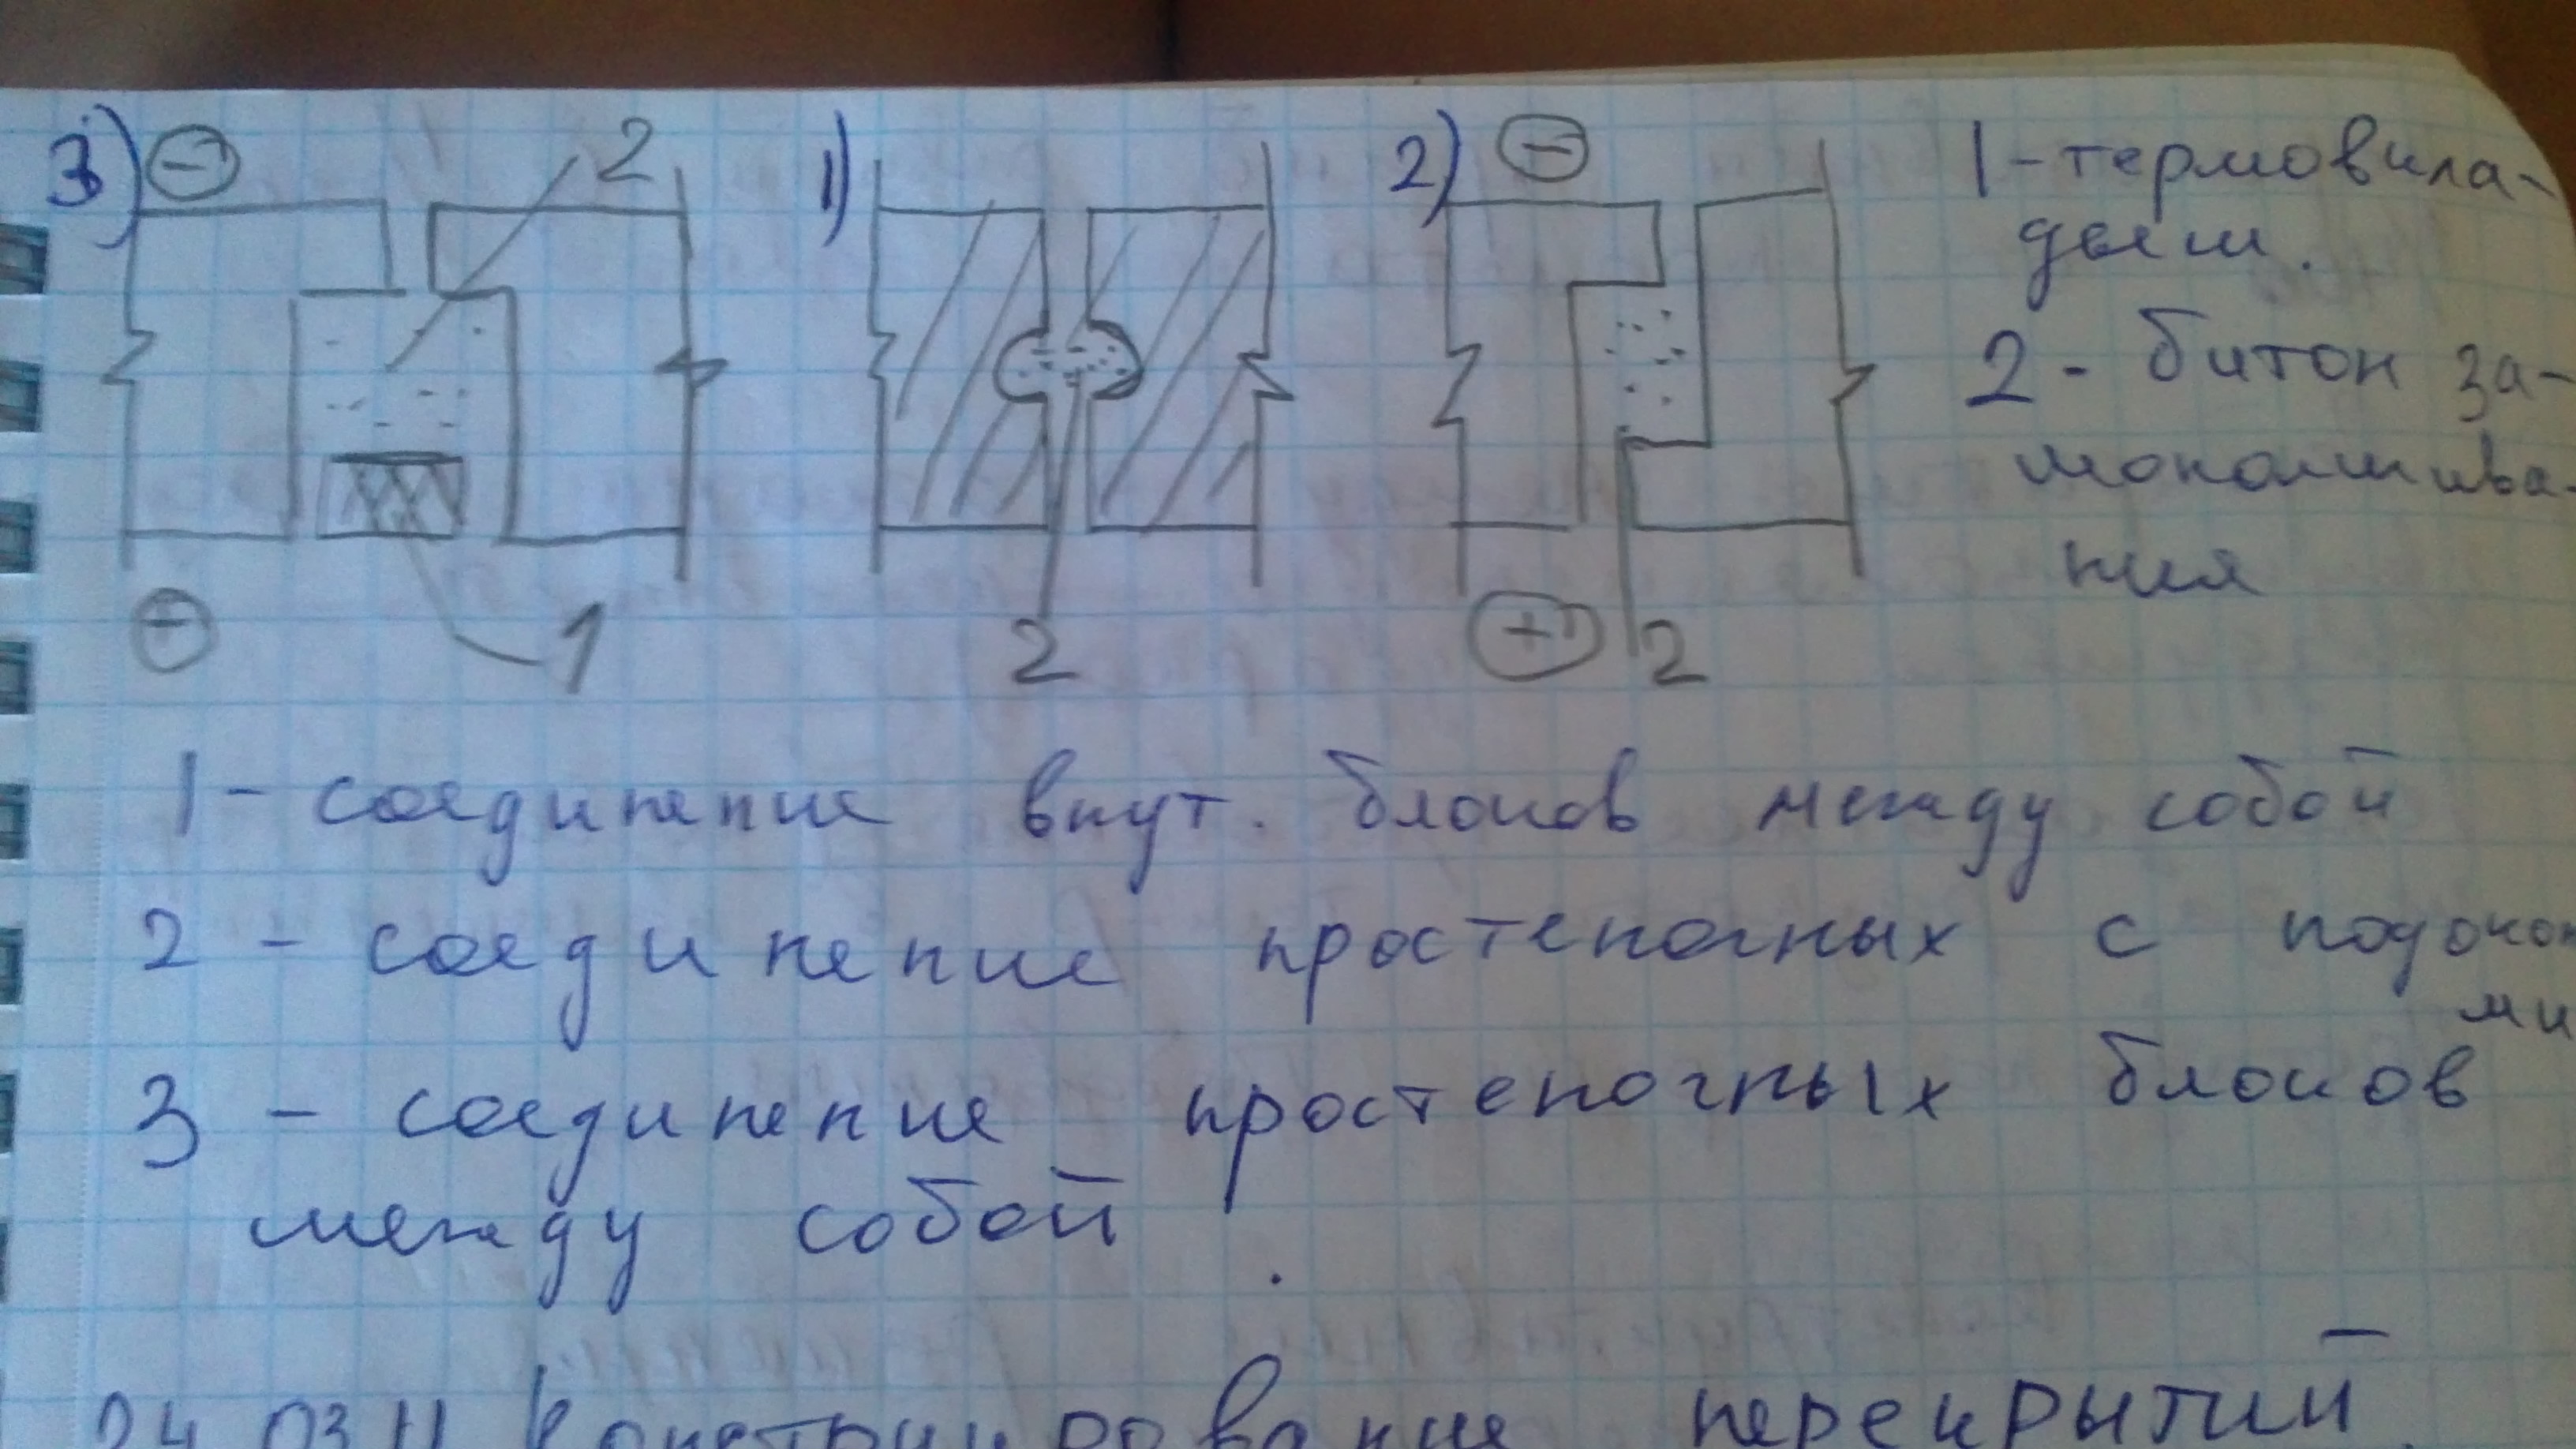 3) ⊖ 2 1) 2) ⊖
1-термовкла-
дыш.
2 - битон за-
моноличива-
ния
⊖ 1 2 ⊕ 2
1 - соединение внут. блоков между собой
2 - соединение простеночных с подокон
ми
3 - соединение простеночных блоков
между собой.
24.03.11 Конструирование перекрытий.